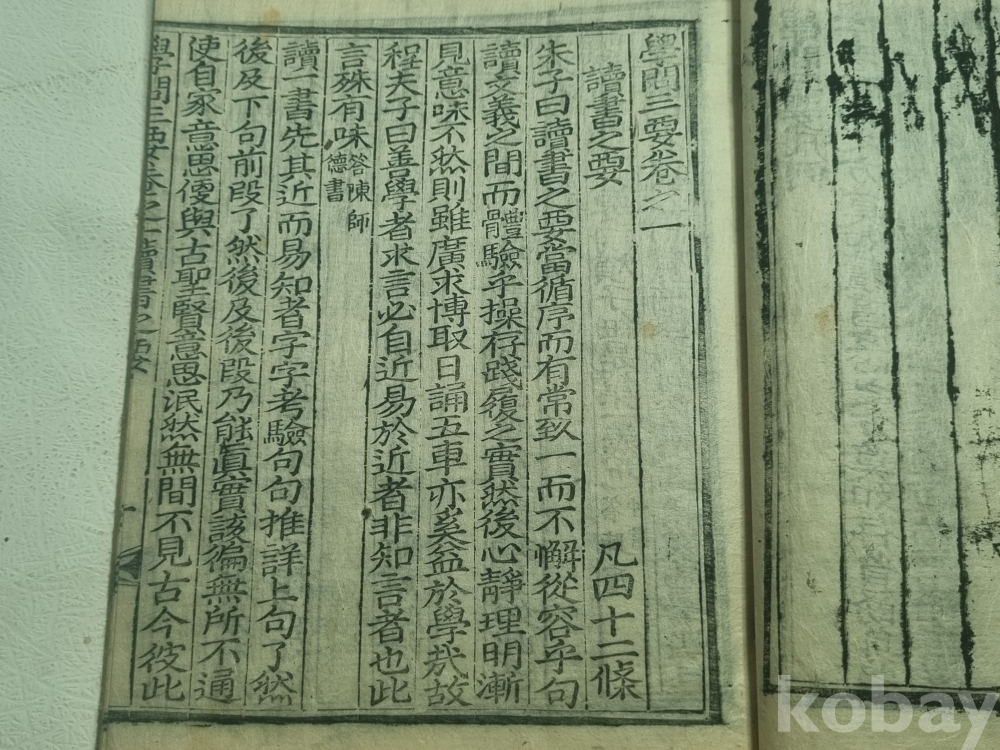 學問三要卷之一
讀書之要 凡四十二條
朱子曰讀書之要當循序而有常致一而不懈從容乎句
讀文義之間而體驗乎操存踐履之實然後心靜理明漸
見意味不然則雖廣求博取日誦五車亦奚益於學哉故
程夫子曰善學者求言必自近易於近者非知言者也此
言殊有味答陳師德書
讀一書先其近而易知者字字考驗句句推詳上句了然
後及下句前段了然後及後段乃能眞實該徧無所不通
使自家意思便與古聖賢意思泯然無間不見古今彼此
學問三要卷之一 讀書之要 一
kobay